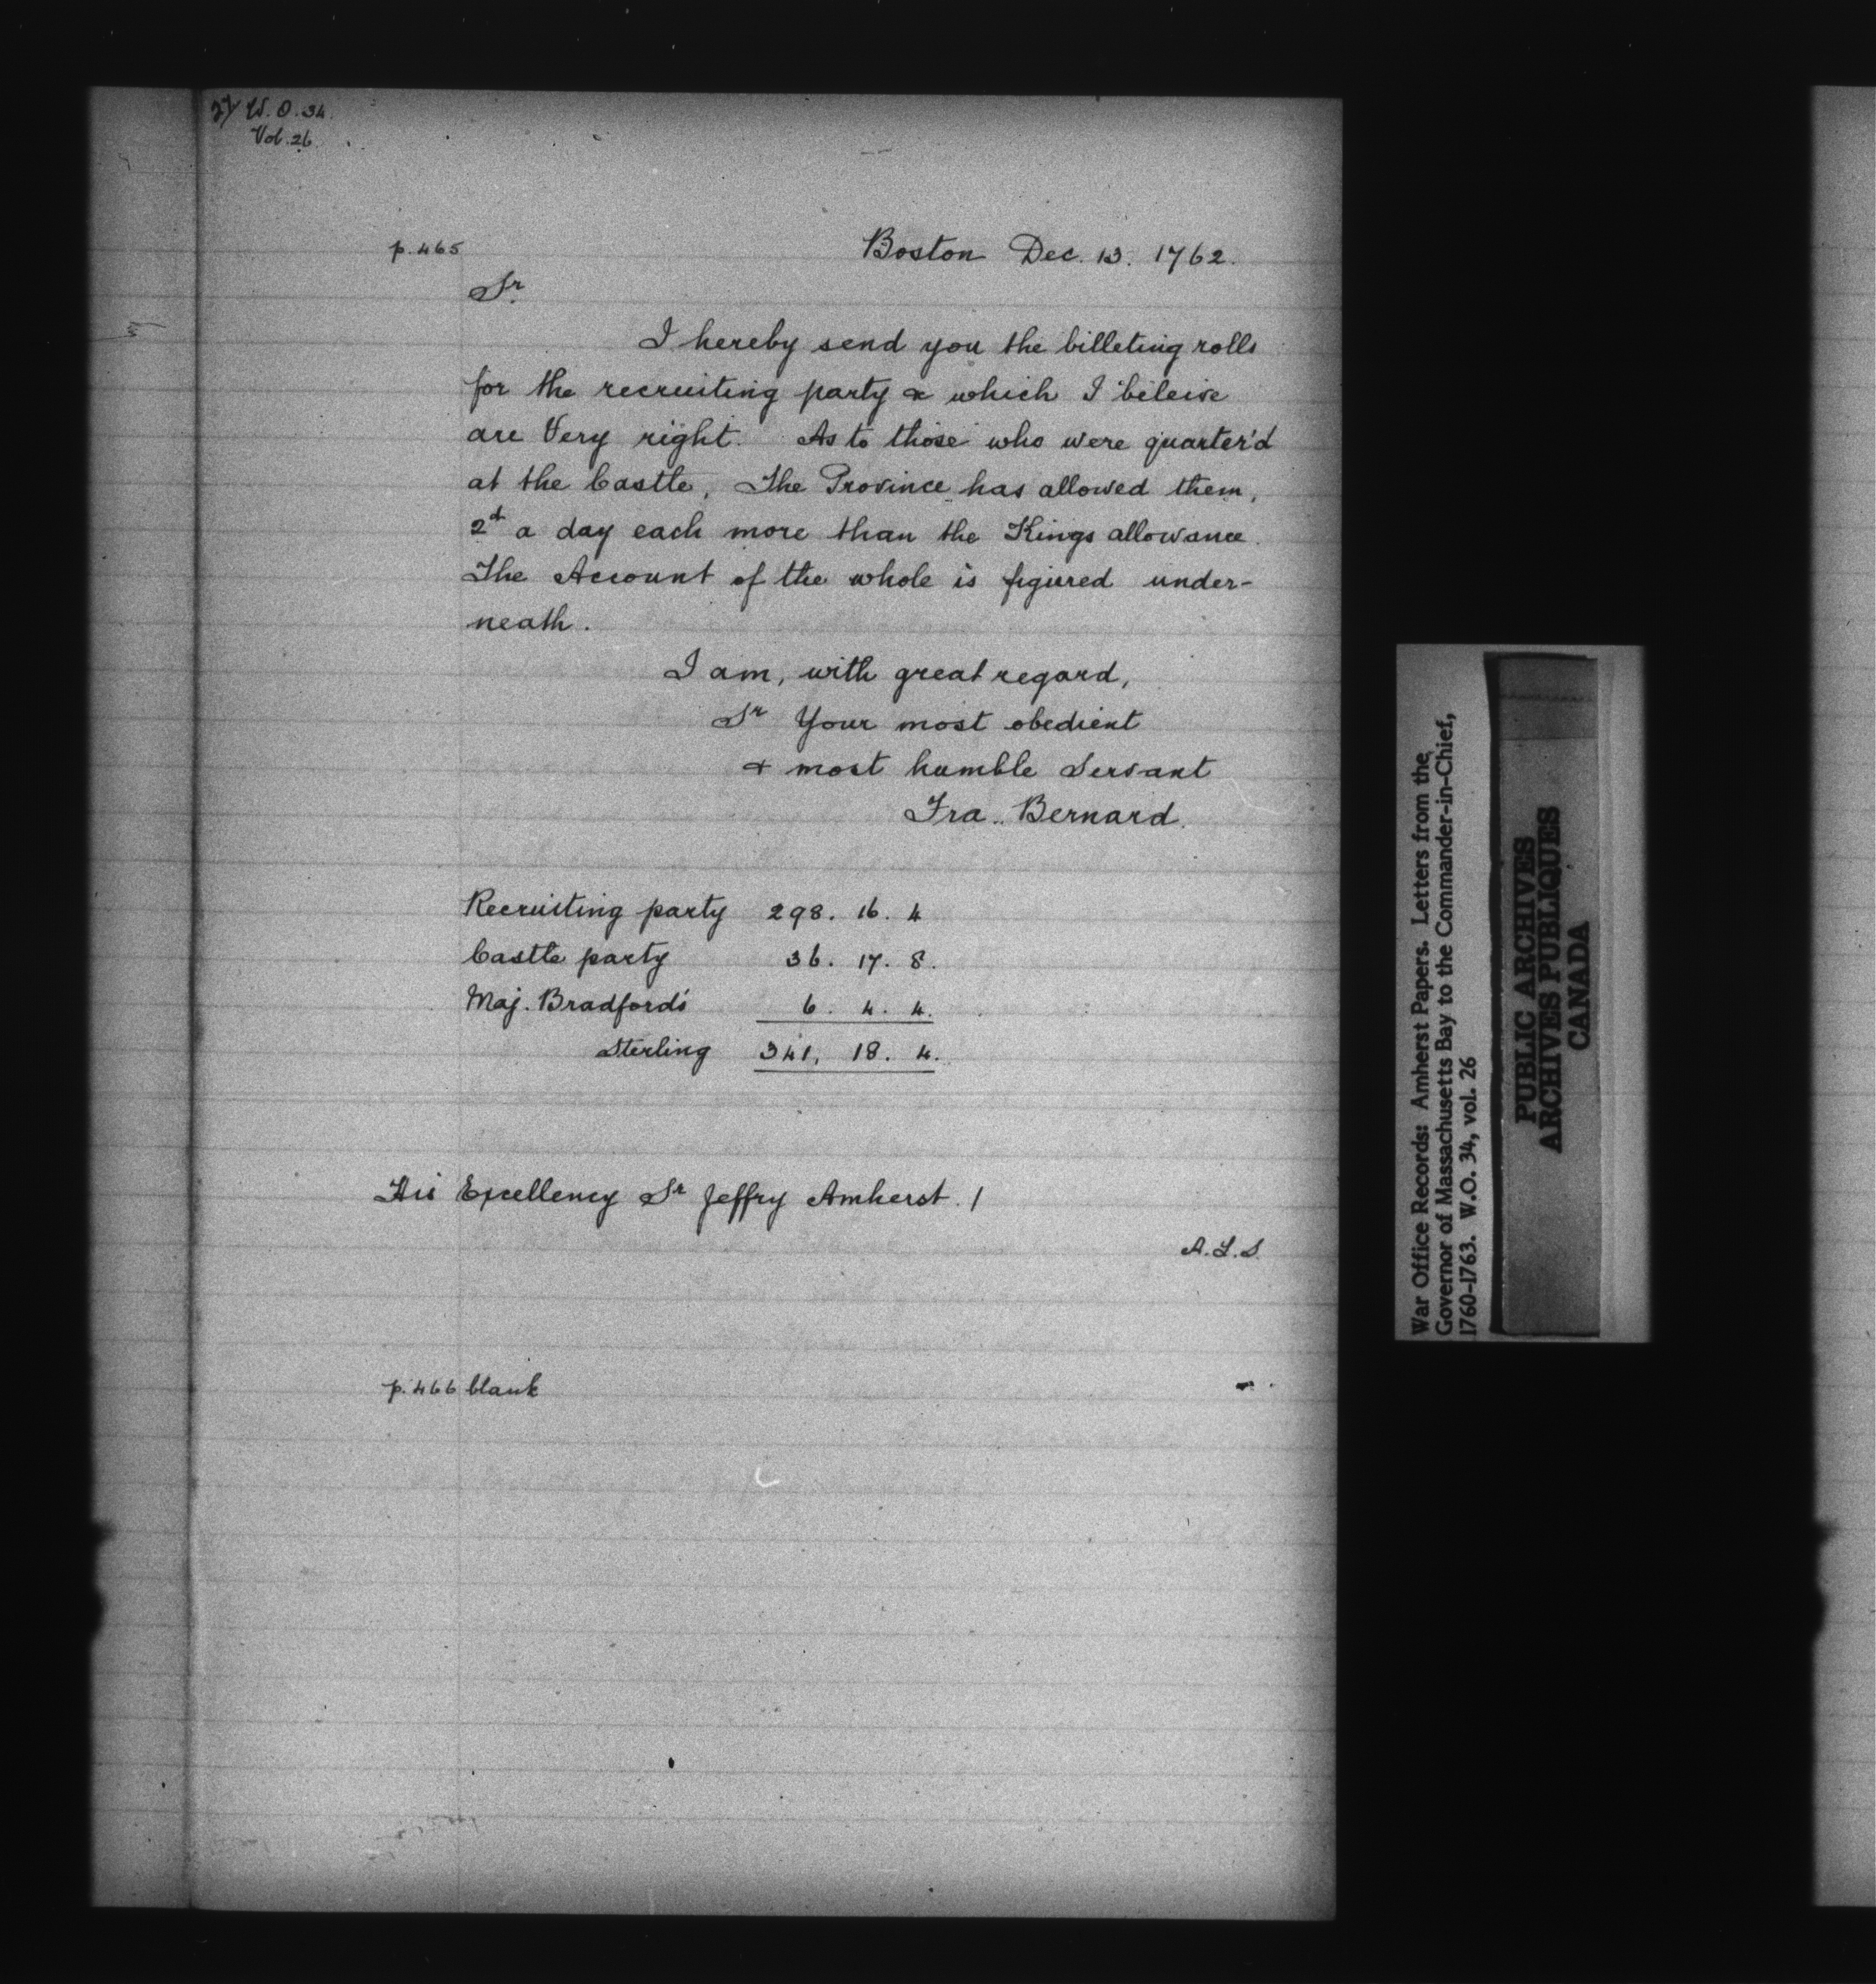 W.O. 34.
Vol. 26.
p. 465
Boston Dec. 13. 1762.
Sr.
I hereby send you the billeting rolls
for the recruiting party & which I beleive
are Very right. As to those who were quarter'd
at the Castle, The Province has allowed them,
2d a day each more than the Kings allowance.
The Account of the whole is figured under-
neath.
I am, with great regard,
Sr Your most obedient
& most humble Servant
Fra.. Bernard.
Recruiting party 298. 16. 4
Castle party 36. 17. 8.
Maj. Bradford's 6. 4. 4.
Sterling 341. 18. 4.
His Excellency Sr Jeffry Amherst. /
A.L.S.
p. 466 blank
War Office Records: Amherst Papers. Letters from the
Governor of Massachusetts Bay to the Commander-in-Chief,
1760-1763. W.O. 34, vol. 26
PUBLIC ARCHIVES
ARCHIVES PUBLIQUES
CANADA